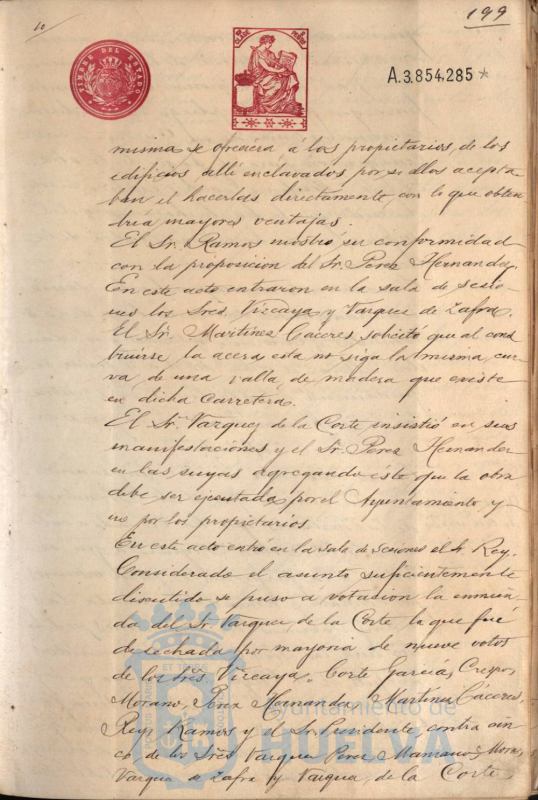 10
199
TIMBRE DEL ESTADO
A.3.854.285*
misma se ofreciera á los propietarios, de los
edificios alli enclavados por si ellos acepta-
ban el hacerlas directamente, con lo que obten
dria mayores ventajas.
El Sr. Ramos mostró su conformidad
con la proposicion del Sr. Perez Hernandez.
En este acto entraron en la sala de sesio-
nes los Sres. Vizcaya y Vazquez de Zafra.
El Sr. Martinez Caceres solicitó que al cons
truirse la acera esta no siga la misma cur-
va, de una valla, de madera que existe
en dicha Carretera.
El Sr. Vazquez de la Corte insistió en sus
manifestaciones y el Sr. Perez Hernandez
en las suyas agregando éste que la obra
debe ser ejecutada por el Ayuntamiento y
no por los propietarios
En este acto entró en la sala de sesiones el Sr. Rey.
Considerado el asunto suficientemente
discutido se puso a votasion la enmien-
da del Sr. Vazquez de la Corte la que fué
desechada por mayoria de nueve votos
de los Sres. Vizcaya, Corte Garcia, Crespo,
Morano, Perez Hernandez, Martinez Caceres,
Rey, Ramos y el Sr. Presidente, contra cin-
co de los Sres Vazquez Perez, Mora,
Vazquez de Zafra y Vazquez de la Corte
Ayuntamiento de
HUELVA